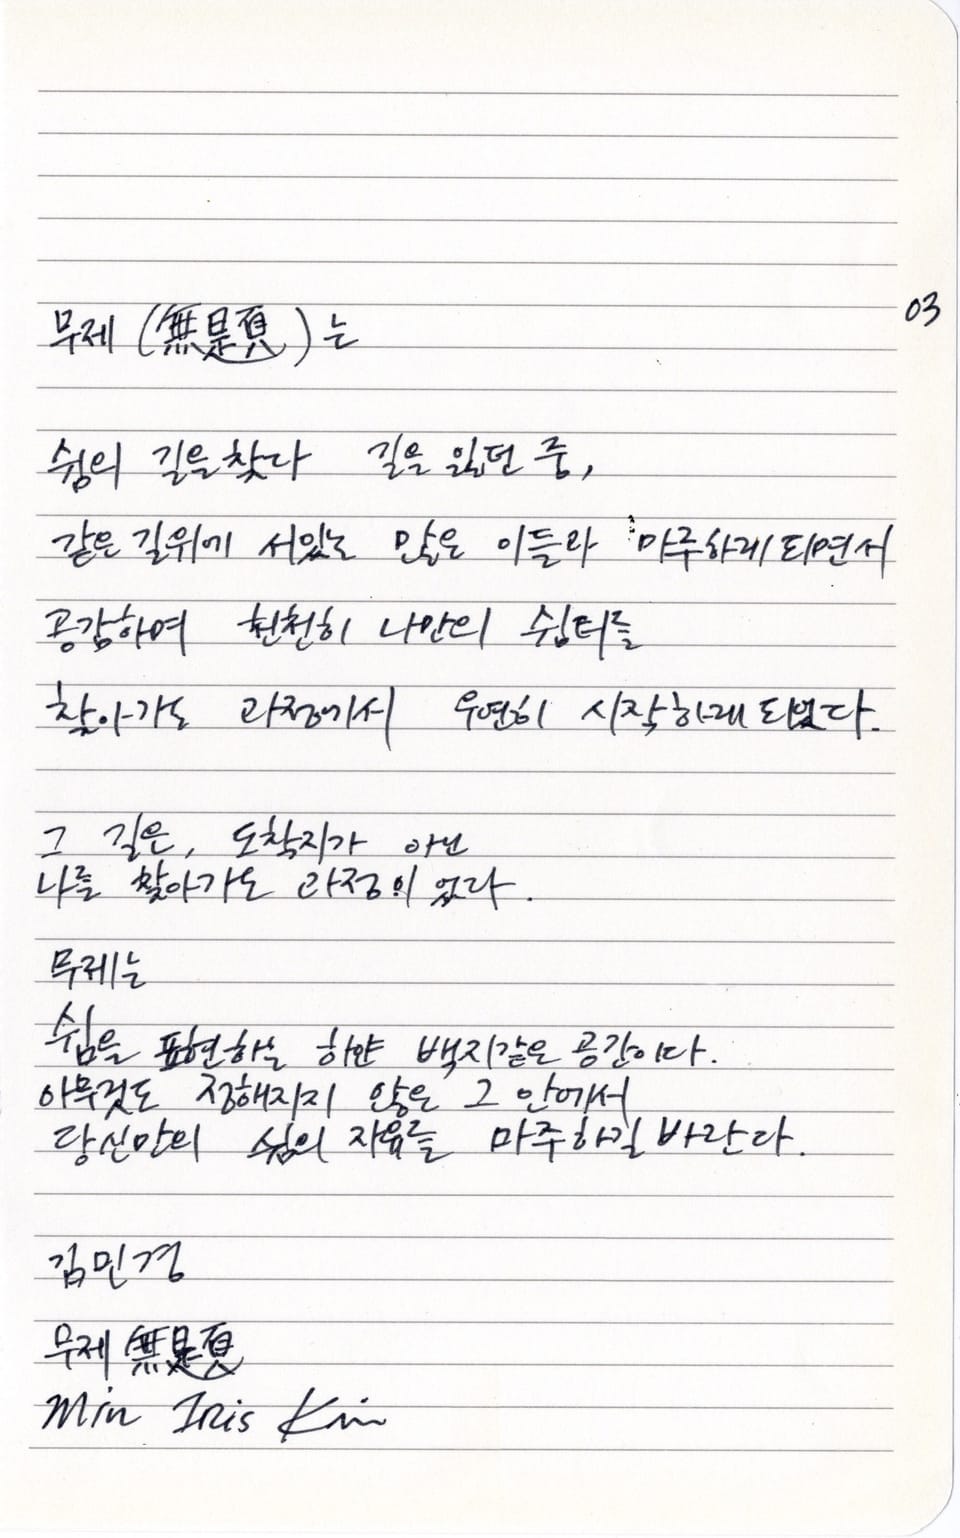 03
무제 (無題)는
쉼의 길을 찾다 길을 잃던 중,
같은 길위에 서있는 많은 이들과 마주하게 되면서
공감하며 천천히 나만의 쉼터를
찾아가는 과정에서 우연히 시작하게 되었다.
그 길은, 도착지가 아닌
나를 찾아가는 과정이었다.
무제는
쉼을 표현하는 하얀 백지같은 공간이다.
아무것도 정해지지 않은 그 안에서
당신만의 쉼의 자유를 마주하길 바란다.
김민경
무제 無題
Min Iris Kim